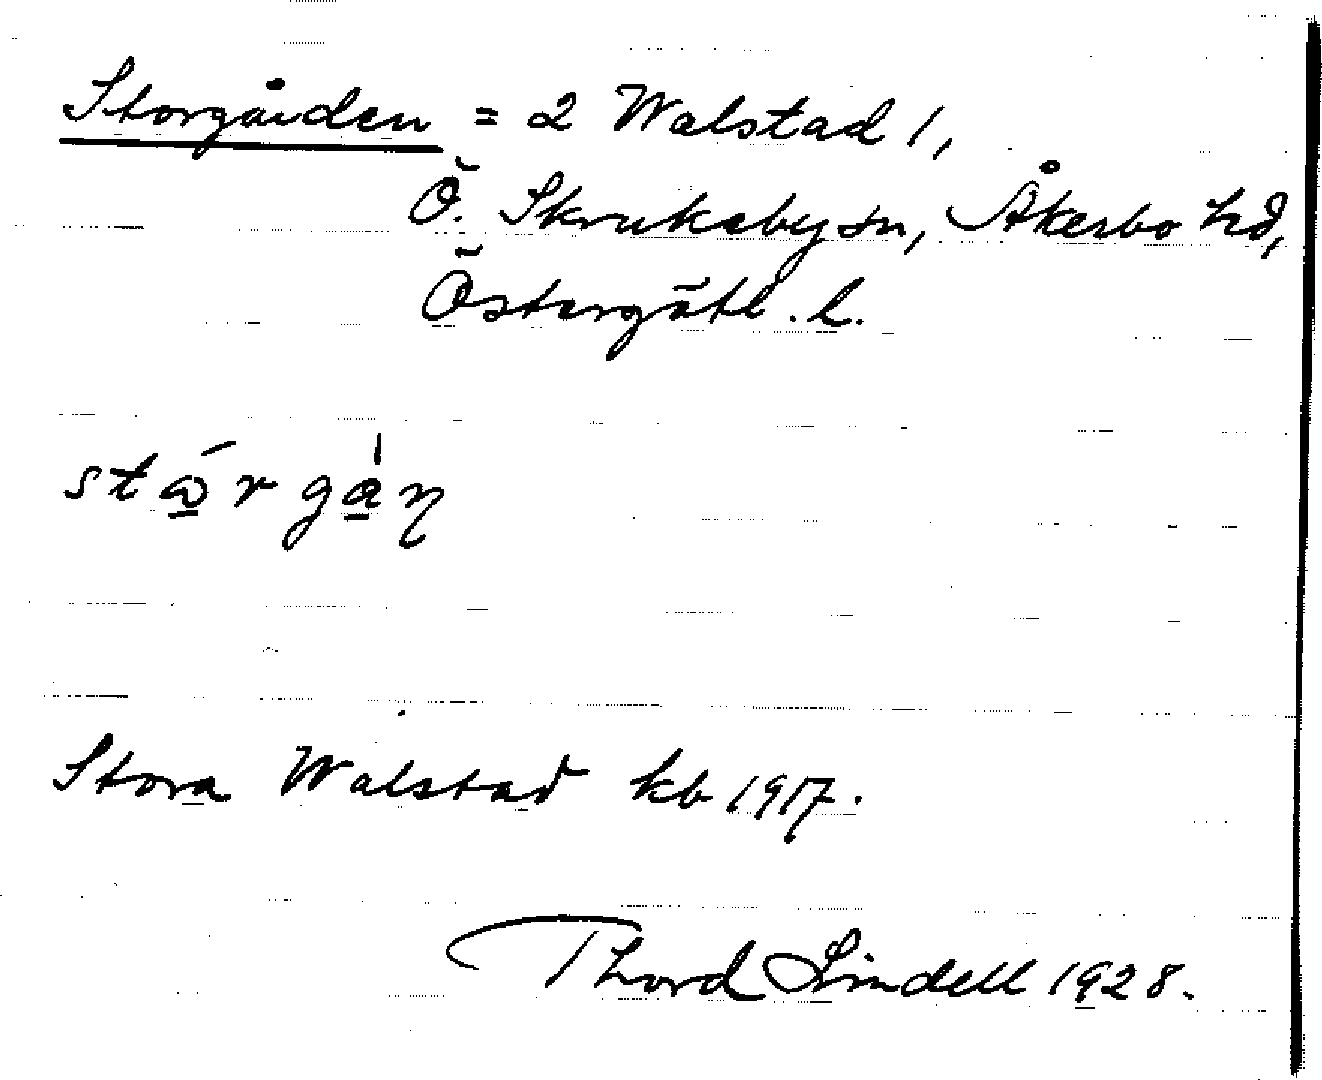 Storgården = 2 Walstad 1,
Ö. Skrukeby sn, Åkerbo hd,
Östergötl. l.
Stora Walstad kb 1917.
Thord Lindell 1928.